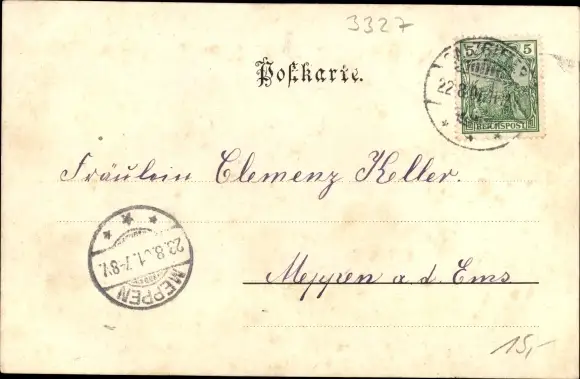 3327
5 5
REICHSPOST
22.8.01
Postkarte.
Fräulein Clemenz Keller.
23.8.01.7-8V.
MEPPEN
Meppen a. d. Ems
15,-